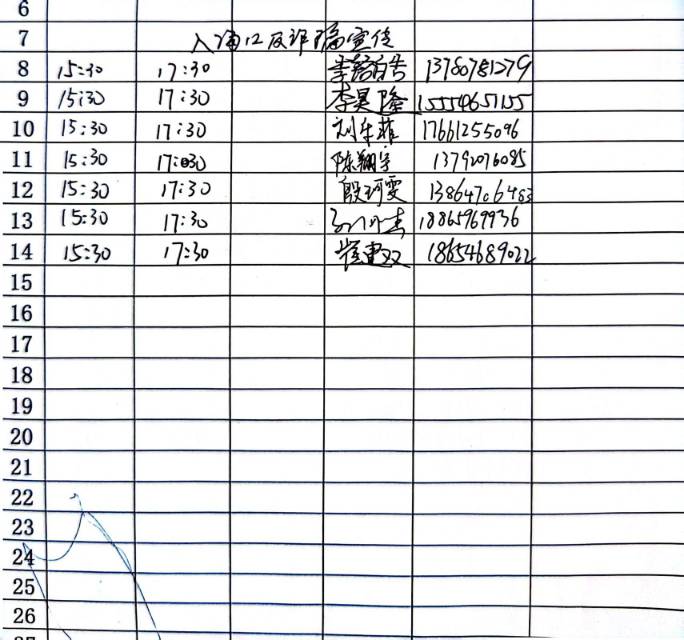 6
7 入涌口反诈骗宣传
8 15:30 17:30 13780781279
9 15:30 17:30 李昊隆 15554657155
10 15:30 17:30 刘乐菲 17661255096
11 15:30 17:30 陈翔宇 13792076085
12 15:30 17:30 殷珂雯 13864706483
13 15:30 17:30 18865969936
14 15:30 17:30 崔建双 18654689022
15
16
17
18
19
20
21
22
23
24
25
26